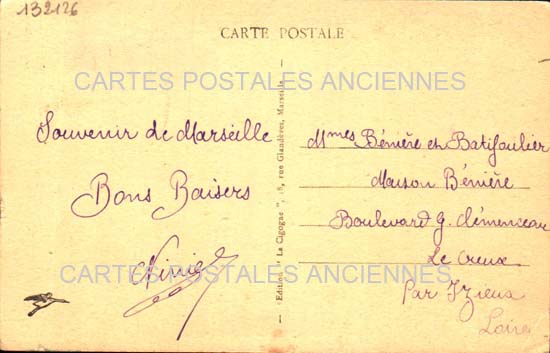 132126
CARTE POSTALE
CARTES POSTALES ANCIENNES
Souvenir de Marseille
Bons Baisers
Mmes Bénière et Batifoulier
Maison Bénière
Boulevard G. Clémenceau
Le Creux
Par Izieux
Loire
Edition " La Cigogne ", 18, rue Glandèves, Marseille
CARTES POSTALES ANCIENNES